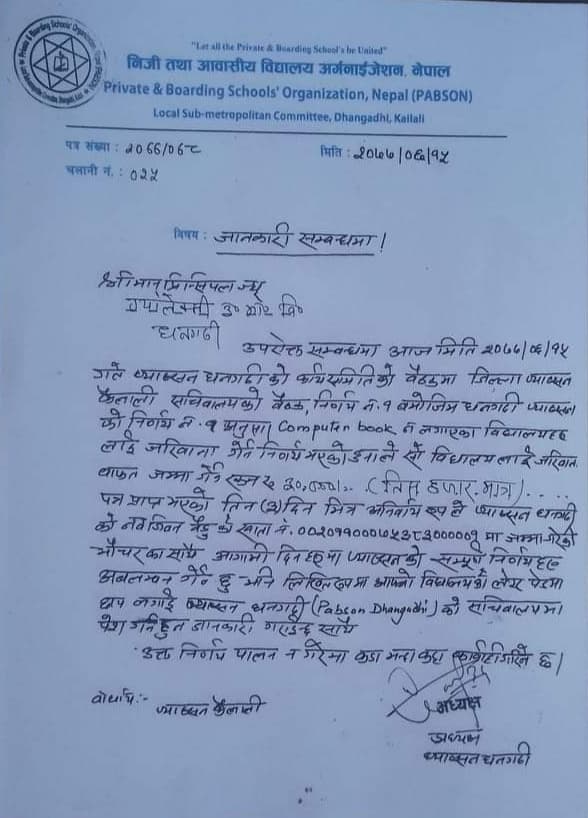 "Let all the Private & Boarding School's be United"
निजी तथा आवासीय विद्यालय अर्गनाईजेशन, नेपाल
Private & Boarding Schools' Organization, Nepal (PABSON)
Local Sub-metropolitan Committee, Dhangadhi, Kailali
पत्र संख्या : २०७७/०७८
मिति : २०७७/०६/१५
चलानी नं. : ०२५
विषय : जानकारी सम्बन्धमा !
श्रीमान् प्रिन्सिपल ज्यू
ग्यालेक्सी उ० मा० वि०
धनगढी
उपरोक्त सम्बन्धमा आज मिति २०७७/०६/१५
गते प्याब्सन धनगढी को कार्यसमितिको बैठकमा जिल्ला प्याब्सन
कैलाली सचिवालयको बैठक, निर्णय नं. १ बमोजिम धनगढी प्याब्सन
को निर्णय नं. १ अनुसार Computer book न लगाएका विद्यालयहरु
लाई जरिवाना गर्ने निर्णय भएको हुनाले सो विद्यालय लाई जरिवाना
वापत जम्मा गर्ने रकम रु ३०,०००।.. (तिस हजार मात्र) . . . .
पत्र प्राप्त भएको तिन (३) दिन भित्र अनिवार्य रुप ले प्याब्सन धनगढी
को खाता नं. मा जम्मा गरेको
भौचर का साथै आगामी दिनहरुमा प्याब्सन को सम्पूर्ण निर्णयहरु
अवलम्बन गर्ने छु भनि लिखित रुपमा आफ्नो विद्यालयको लेटर प्याडमा
छाप लगाई प्याब्सन धनगढी (Pabson Dhangadhi) को सचिवालयमा
पेश गर्नुहुन जानकारी गराईन्छ साथै
उक्त निर्णय पालन न गरेमा कडा भन्दा कडा कार्वाही गरिने छ।
बोधार्थ:- प्याब्सन कैलाली
अध्यक्ष
अध्यक्ष
प्याब्सन धनगढी